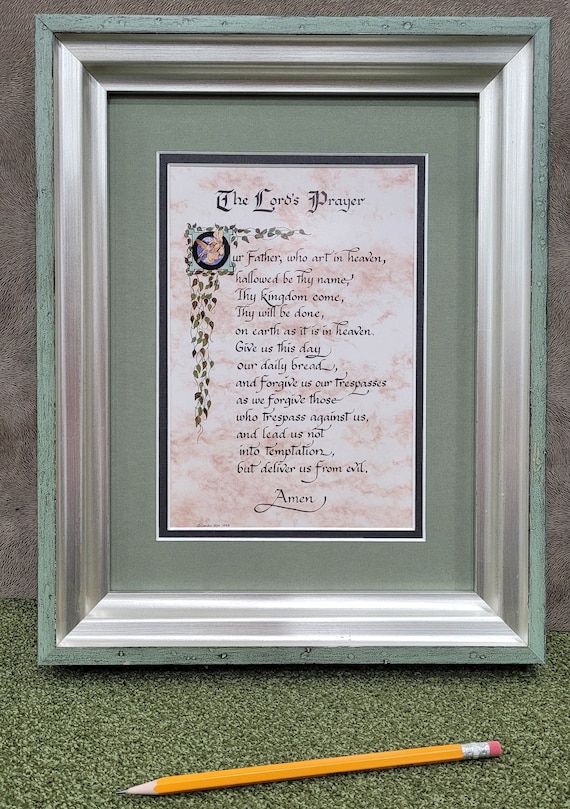 The Lord's Prayer
Our Father, who art in heaven,
hallowed be thy name;
Thy kingdom come,
Thy will be done,
on earth as it is in heaven.
Give us this day
our daily bread,
and forgive us our trespasses
as we forgive those
who trespass against us,
and lead us not
into temptation,
but deliver us from evil.
Amen